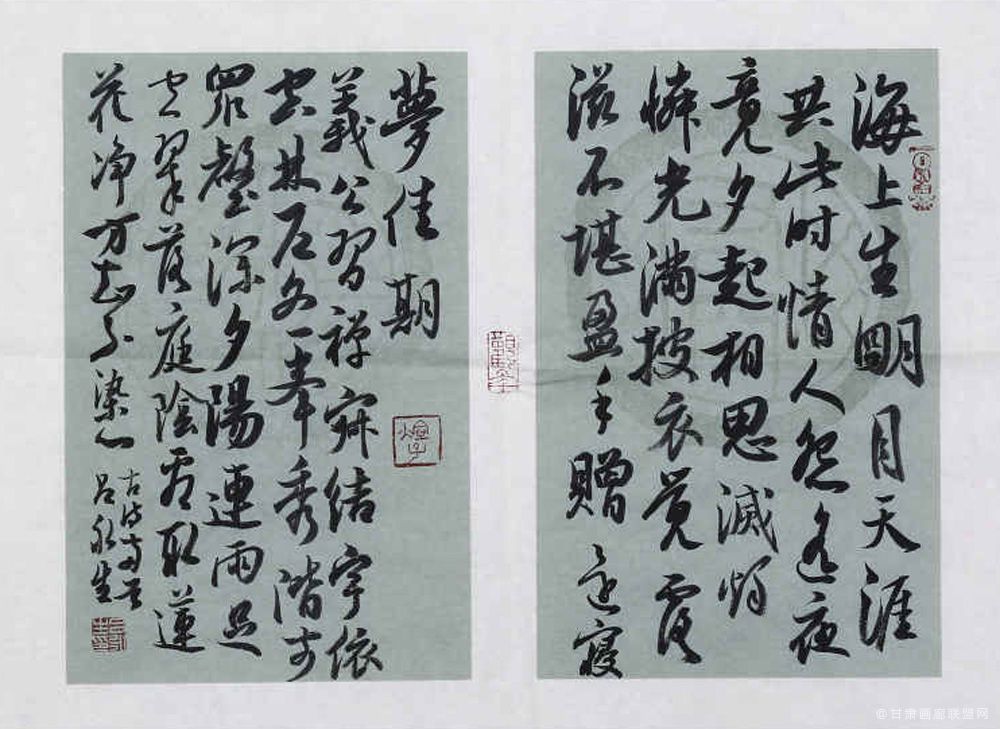 海上生朙月天涯
共此时情人怨遥夜
竟夕起相思滅烛
憐光满披衣覺露
滋不堪盈手贈还寝
夢佳期
義公習禅寂結宇依
空林户外一峯秀階前
眾壑深夕陽連雨足
空翠落庭陰看取蓮
花净方知不染心
古诗两首
吕永生
@甘肃画廊联盟网